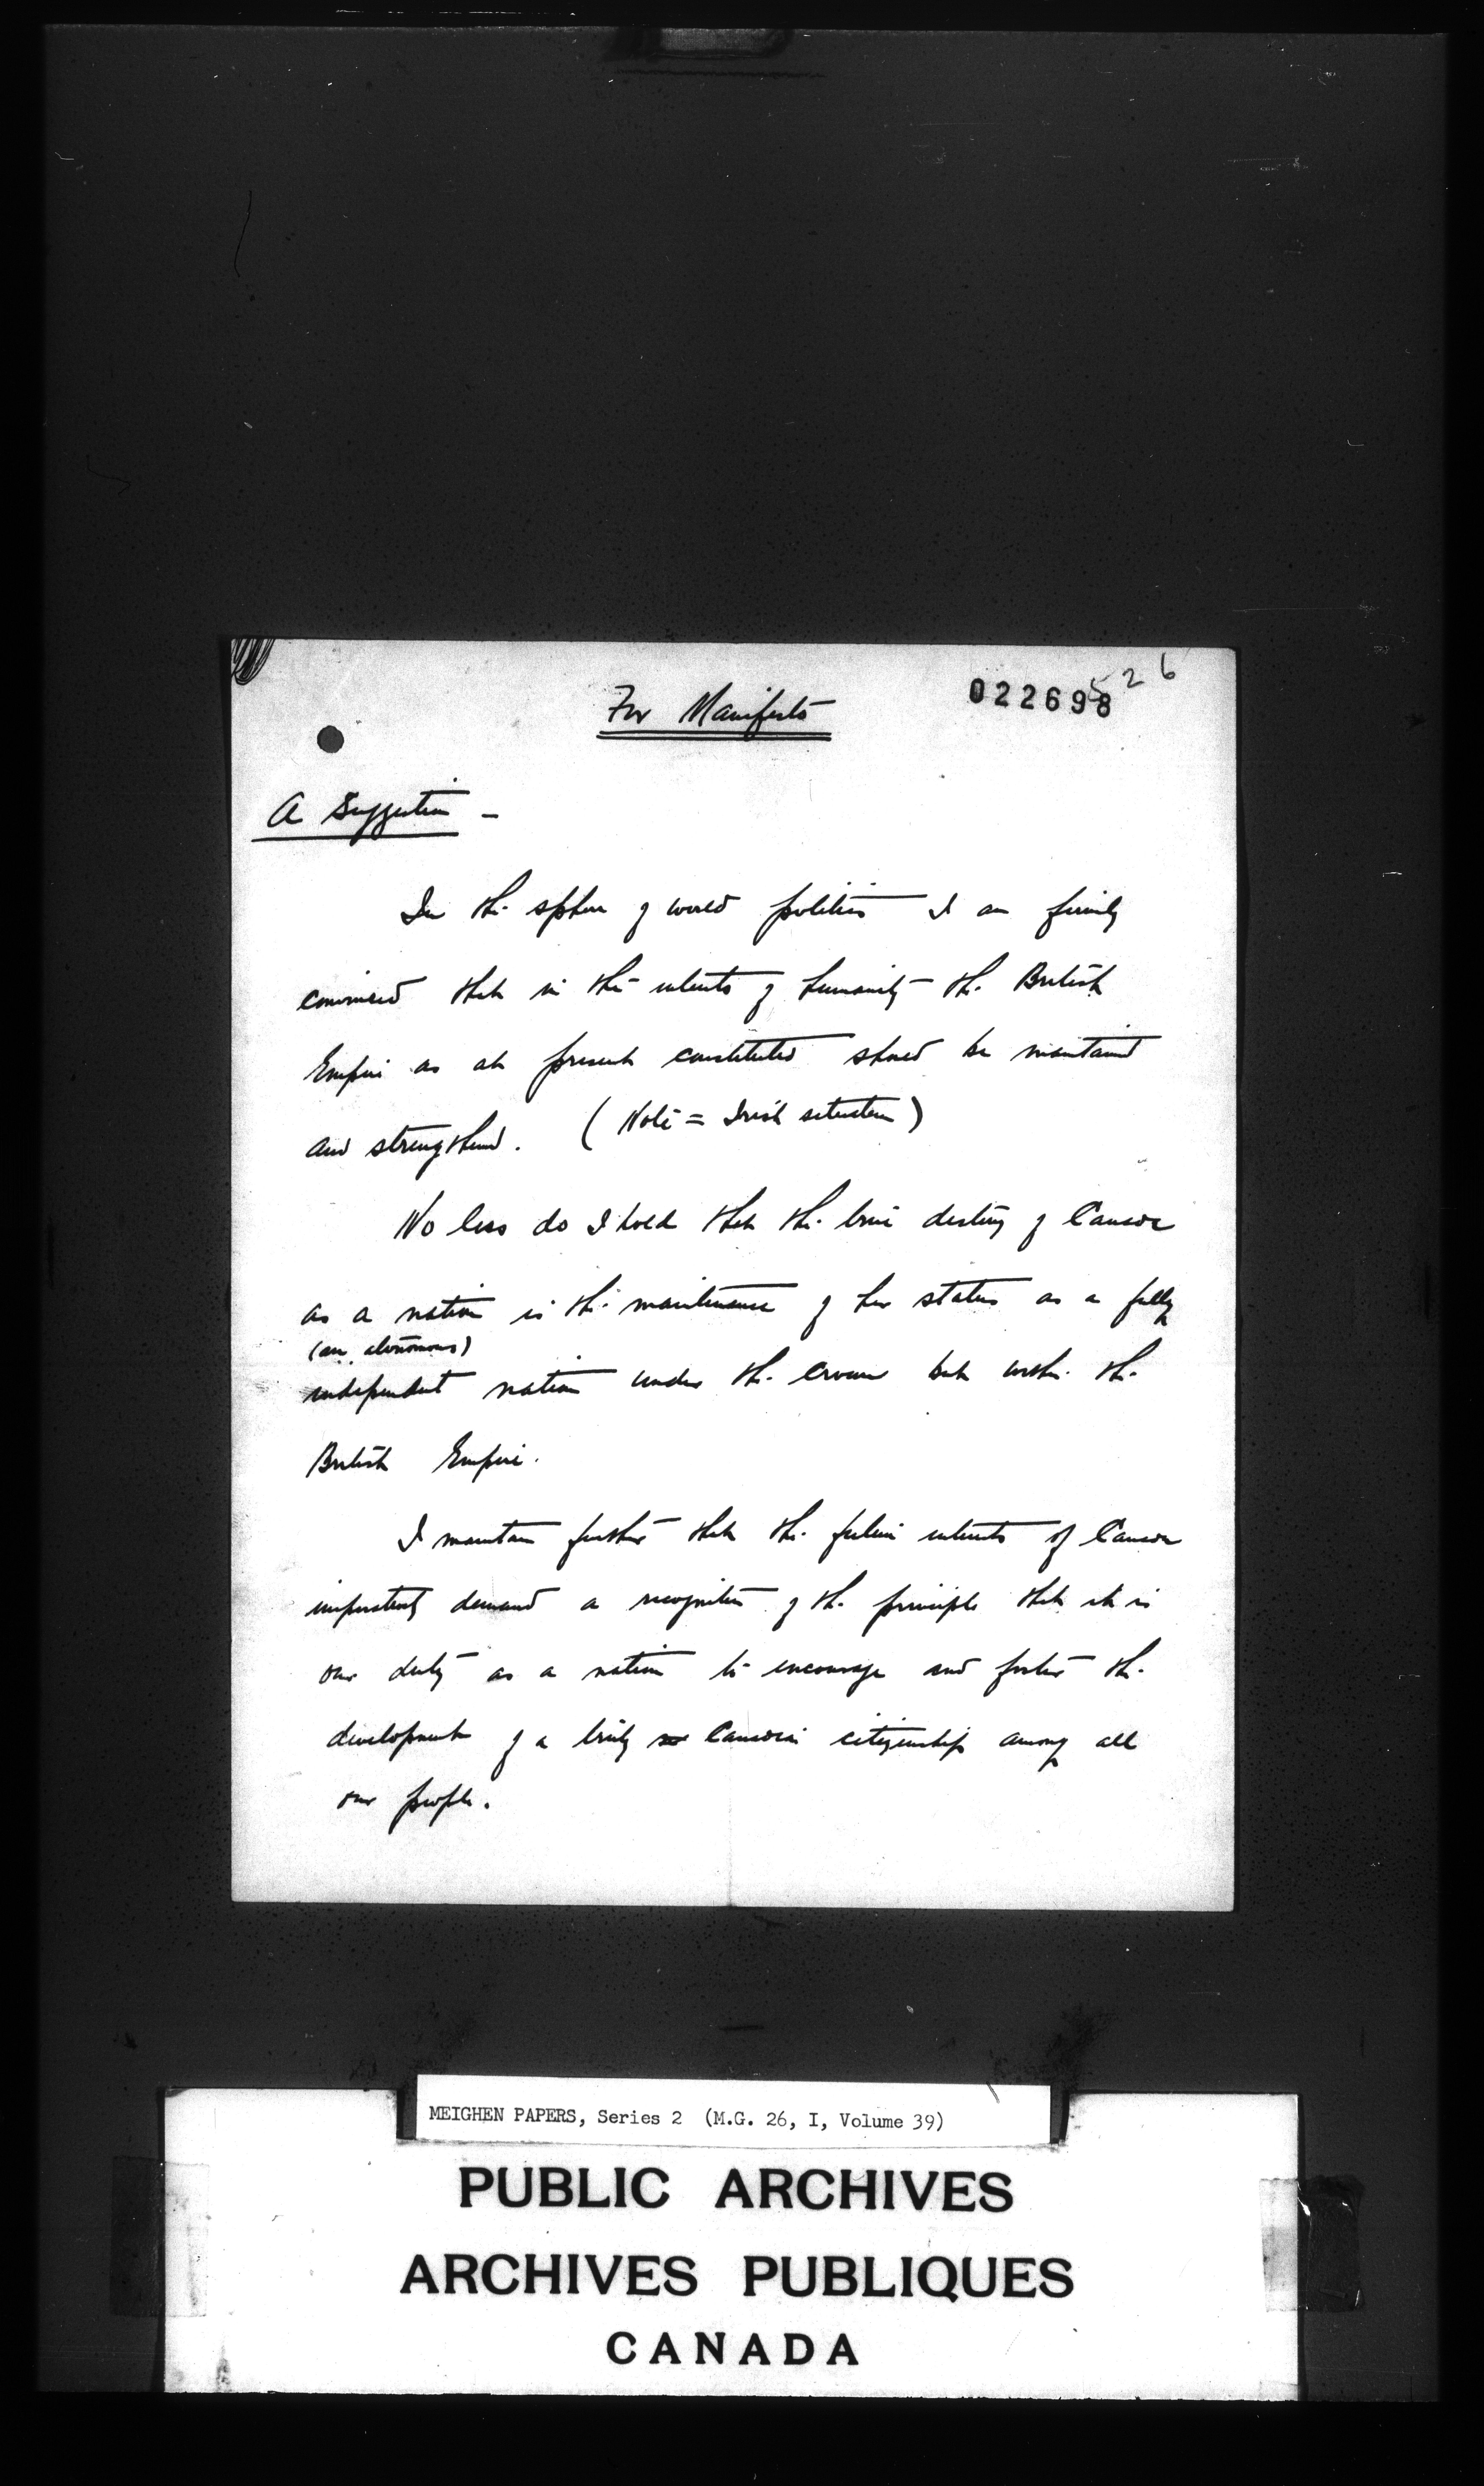 For Manifesto
022698
526
A Suggestion -
In the sphere of world politics I am firmly
convinced that in the interests of humanity the British
Empire as at present constituted should be maintained
and strengthened. (Note = Irish situation)
No less do I hold that the true destiny of Canada
as a nation is the maintenance of her status as a fully
(an autonomous)
independent nation under the crown but within the
British Empire.
I maintain further that the future interests of Canada
imperatively demand a recognition of the principle that it is
our duty as a nation to encourage and foster the
development of a truly Canadian citizenship among all
our people.
MEIGHEN PAPERS, Series 2 (M.G. 26, I, Volume 39)
PUBLIC ARCHIVES
ARCHIVES PUBLIQUES
CANADA